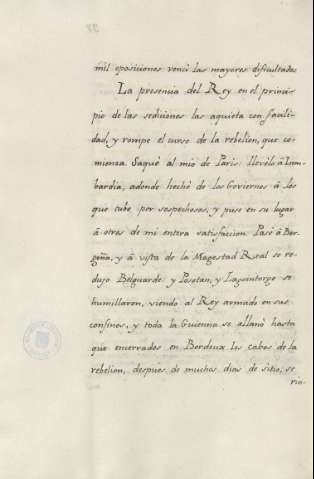 mil oposiciones vencì las mayores dificultades
La presencia del Rey en el princi-
pio de las sediciones las aquieta con facili-
dad, y rompe el curso de la rebelion, que co-
mienza. Saquè al mio de Paris: llevèle à Lom-
bardia, adonde hechè de los Goviernos à los
que tube por sospechosos, y puse en su lugar
à otros de mi entera satisfaccion. Pasè à Bor-
goña, y à vista de la Magestad Real se re-
dujo Belguarde y
se
humillaron, viendo al Rey armado en sus
confines, y toda la Guienna se allanò hasta
que encerrados en Bordeux los cabos de la
rebelion, despues de muchos dias de sitio, se
rin-